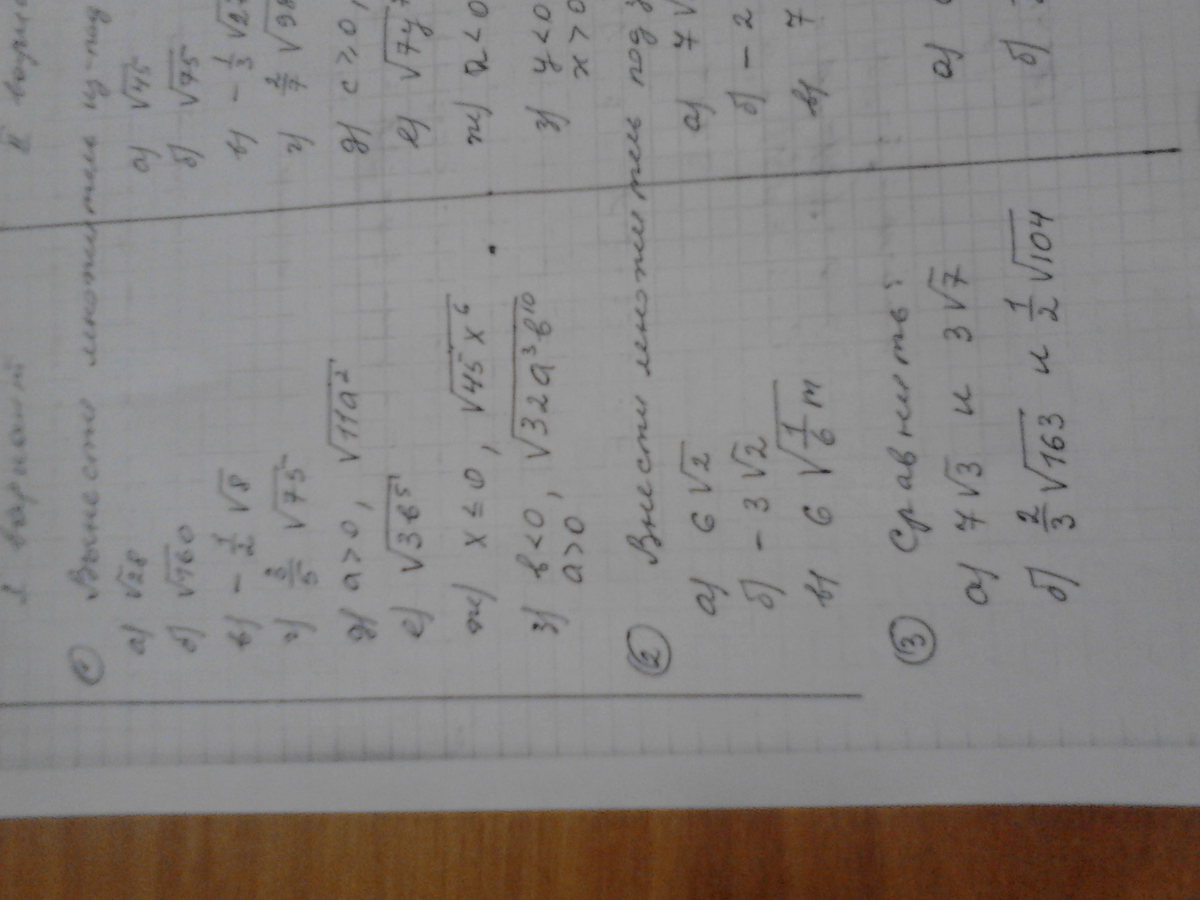 I вариант
① Вынести множитель из-под
а) √28
б) √160
в) - 1/2 √8
г) 3/5 √75
д) a>0, √11a²
е) √3b⁵
ж) x ≤ 0, √45x⁶
з) b<0, a>0, √32a³b¹⁰
② Внести множитель под
а) 6√2
б) - 3√2
в) 6√1/6 m
③ Сравнить:
а) 7√3 и 3√7
б) 2/3 √163 и 1/2 √104
II
а) √45
б) √75
в) - 1/3
г) 2/7
д) c ≥ 0,
е)
ж) a < 0
з) y<0 x>0
а) 7√
б) - 2
в) 7
а)
б)